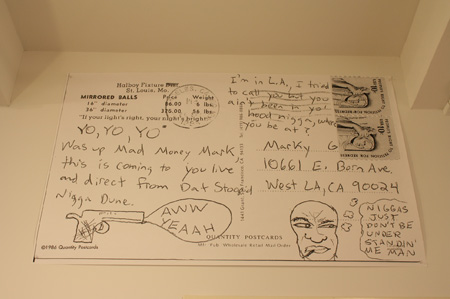 Hailboy Fixture
St. Louis, Mo.
MIRRORED BALLS Price Weight
16" diameter $6.00 6 lbs.
36" diameter $75.00 56 lbs.
"If your light's right, your night's bright"
YO, YO, YO
Was up Mad Money Mark,
this is coming to you live
and direct from Dat Stooped
Nigga Dune.
AWW
YEAAH
©1986 Quantity Postcards
QUANTITY POSTCARDS
I'm in L.A., I tried
to call you but you
ain't been to yo'
head nigga, where
you be at?
Marky G
10661 E. Born Ave
West LA, CA 90024
NIGGAS
JUST
DON'T BE
UNDER
STANDIN'
ME MAN